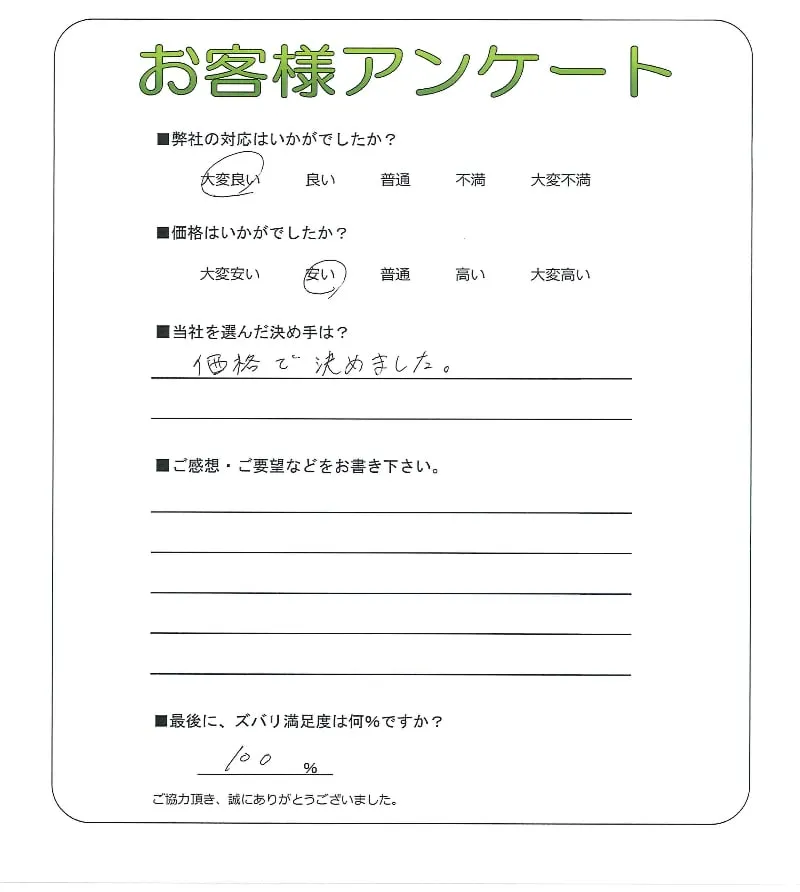 お客様アンケート
■弊社の対応はいかがでしたか？
大変良い 良い 普通 不満 大変不満
■価格はいかがでしたか？
大変安い 安い 普通 高い 大変高い
■当社を選んだ決め手は？
価格で決めました。
■ご感想・ご要望などをお書き下さい。
■最後に、ズバリ満足度は何%ですか？
100 %
ご協力頂き、誠にありがとうございました。